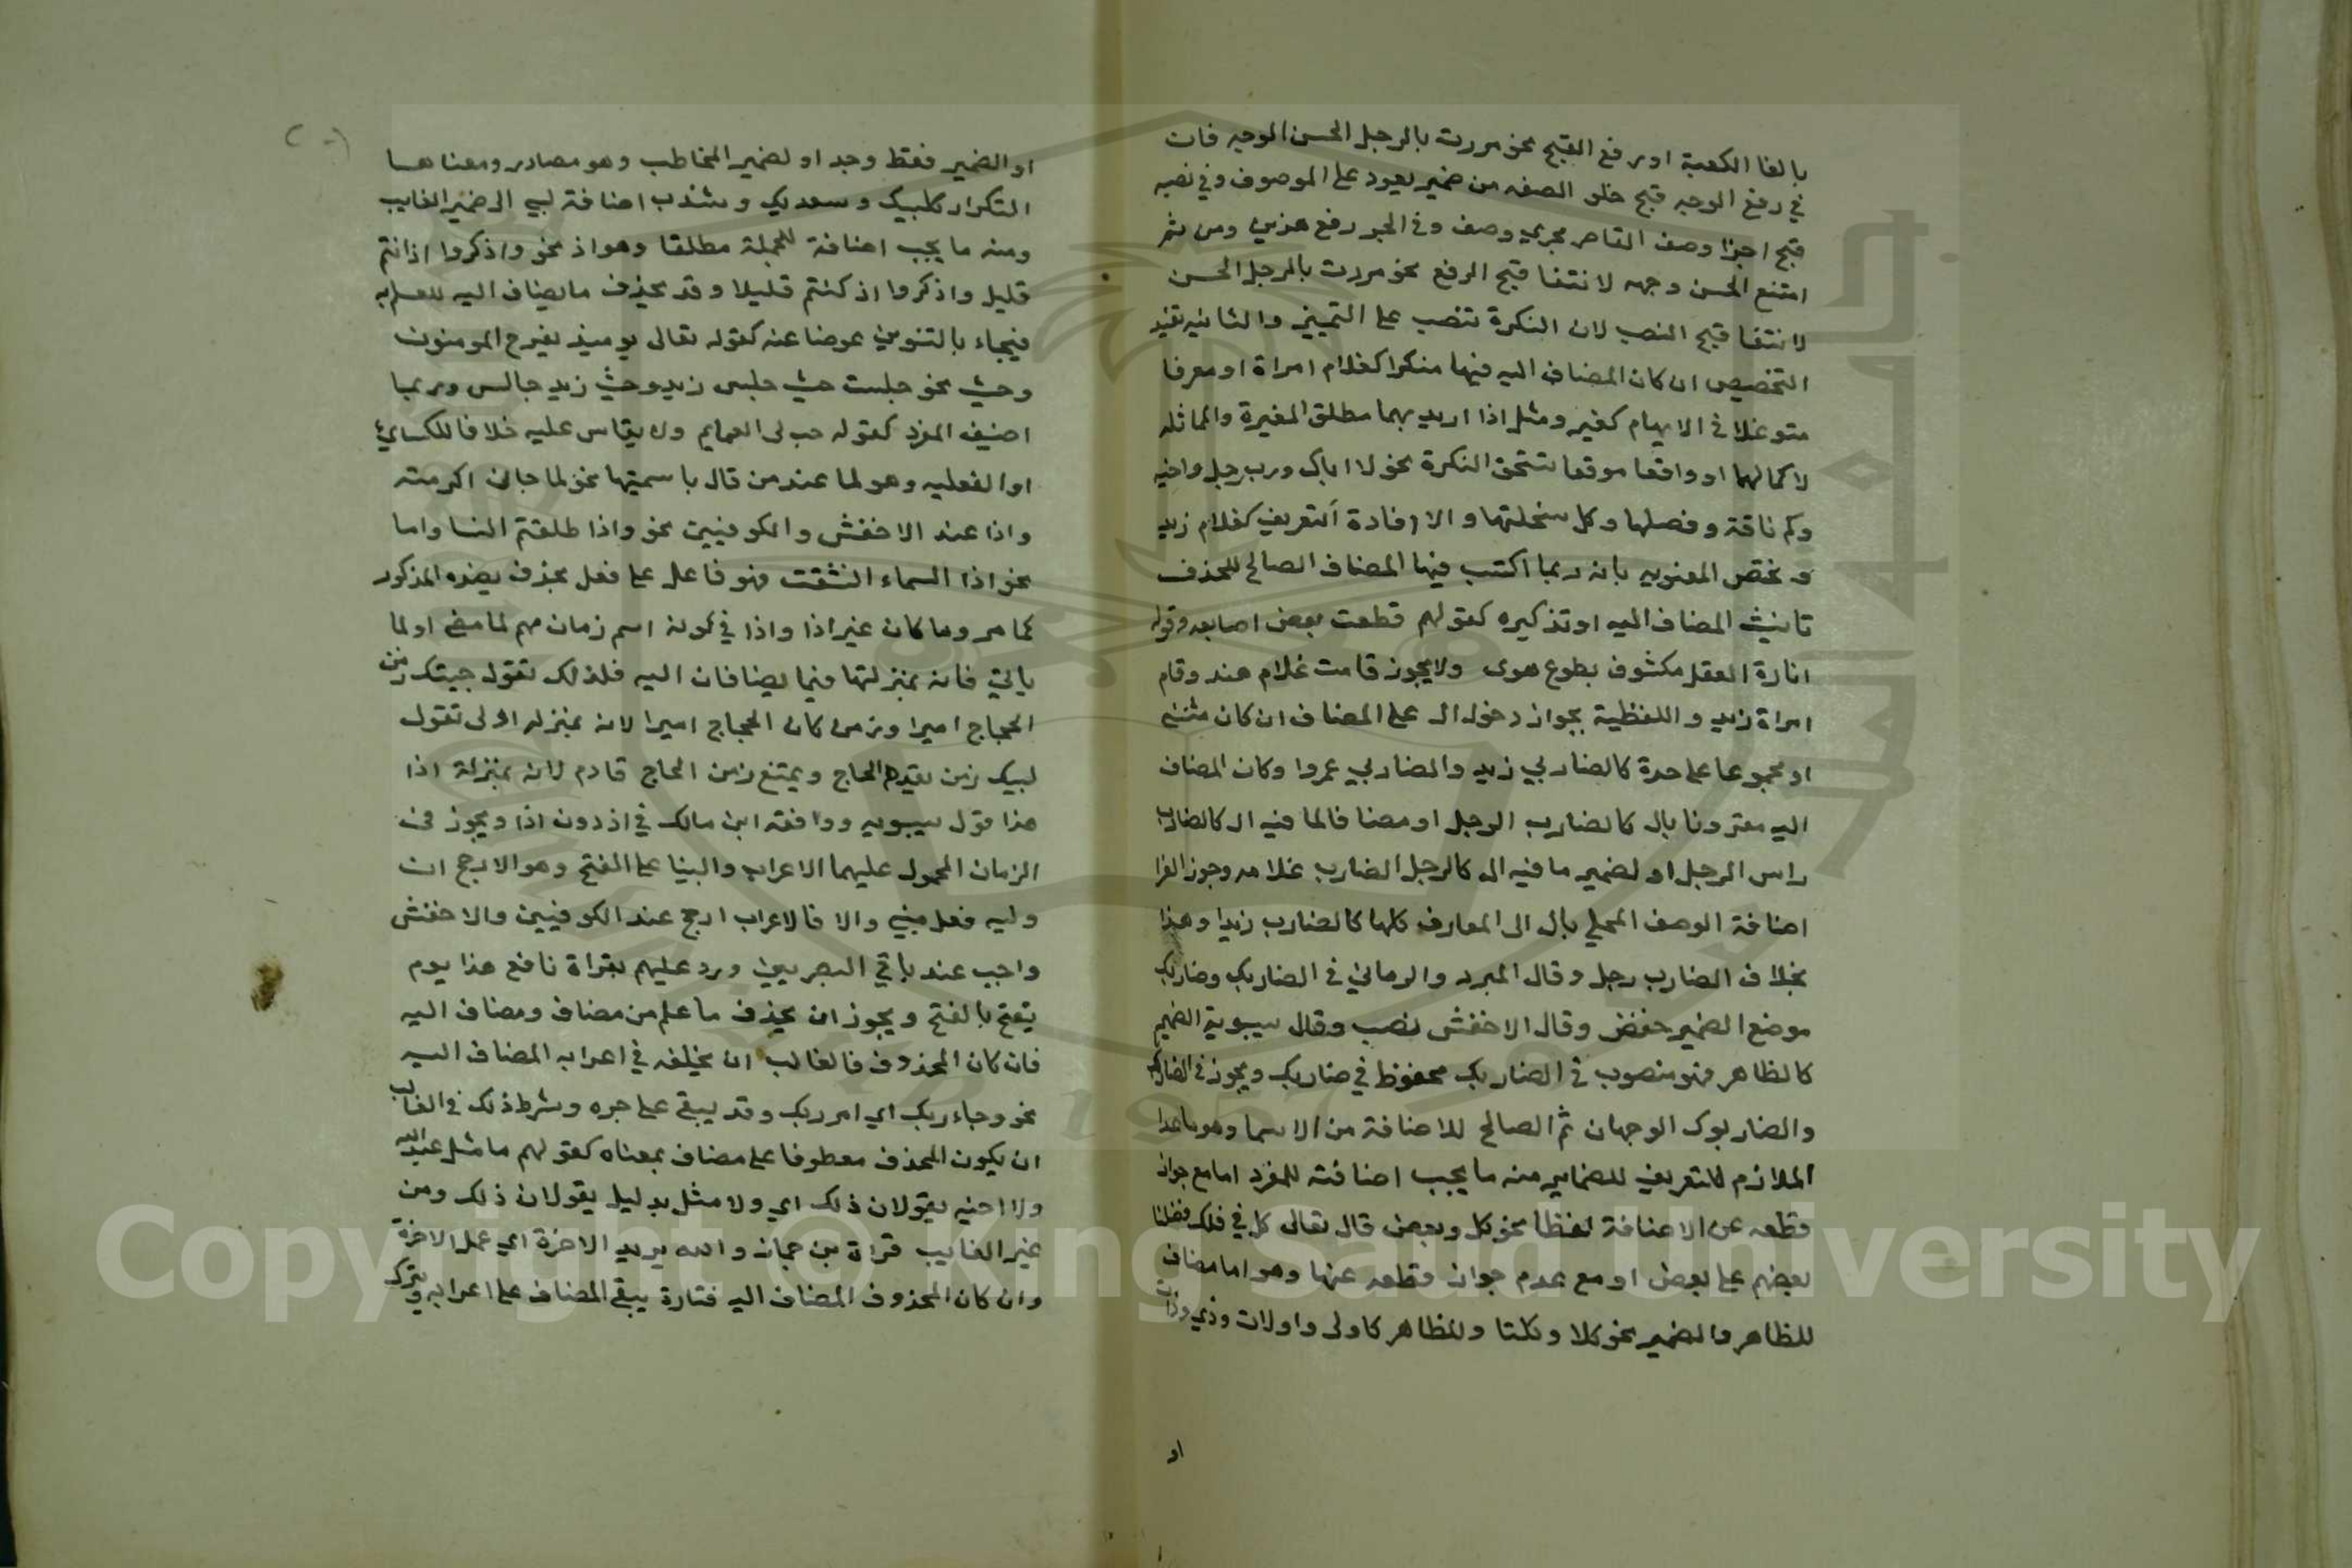 بالغا الكعبة او رفع القبح نحو مررت بالرجل الحسن الوجه فان
في رفع الوجه قبح خلو الصفه من ضمير يعود على الموصوف وفي نصبه
قبح اجرا وصف القاصر مجري وصف وفي الجر رفع هذين ومن ثم
امتنع الحسن وجهه لانتفا قبح الرفع نحو مررت بالرجل الحسن
لانتفا قبح النصب لان النكرة تنصب على التمييز والثانيه تفيد
التخصيص ان كان المضاف اليه فيها منكرا كغلام امراة او معرفا
متوغلا في الابهام كغير ومثل اذا اريد بهما مطلق المغيرة والماثله
لا كمالهما او واقعا موقعا تستحق النكرة نحو لا اباك ورب رجل واخيه
وكم ناقة وفصلها وكل سخلتها والا افادة التعريف كغلام زيد
وتختص المعنويه بانه ربما اكتسب فيها المضاف الصالح للحذف
تانيث المضاف اليه او تذكيره كقولهم قطعت بعض اصابعه وقوله
انارة العقل مكشوف بطوع هوى ولا يجوز قامت غلام هند وقام
امراة زيد واللفظية بجواز دخول ال على المضاف ان كان مثنى
او مجموعا على حدة كالضاربي زيد والضاربي عمروا وكان المضاف
اليه مقرونا بال كالضارب الرجل او مضافا لما فيه ال كالضارب
راس الرجل او لضمير ما فيه ال كالرجل الضارب غلامه وجوز الفرا
اضافة الوصف المحلي بال الى المعارف كلها كالضارب زيدا وهذا
بخلاف الضارب رجل وقال المبرد والرماني في الضاربك وضاربك
موضع الضمير خفض وقال الاخفش نصب وقال سيبوية الضمير
كالظاهر فهو منصوب في الضاربك مخفوظ في ضاربك ويجوز في الضاربك
والضاربوك الوجهان ثم الصالح للاضافة من الاسما وهو ما عدا
الملازم للتعريف للضماير منه ما يجب اضافته للمفرد اما مع جواز
قطعه عن الاضافة لفظا نحو كل وبعض قال تعالى كل في فلك فضلنا
بعضهم على بعض او مع عدم جواز قطعه عنها وهو اما مضاف
للظاهر والضمير نحو كلا وكلتا وللظاهر كاولى واولات وذي وذات
او
او الضمير فقط وحد او لضمير المخاطب وهو مصادر ومعناها
التكرار كلبيك وسعديك وشذب اضافة لبي الى ضمير الغايب
ومنه ما يجب اضافة للجملة مطلقا وهو اذ نحو واذكروا اذ انتم
قليل واذكروا اذ كنتم قليلا وقد يحذف ما يضاف اليه للعلم به
فيجاء بالتنوين عوضا عنه كقوله تعالى يوميذ يفرح المومنون
وحيث نحو جلست حيث جلس زيد وحيث زيد جالس وربما
اضيف المفرد كقوله حب لى العمايم ولا يقاس عليه خلافا للكسائي
او الفعليه وهو لما عند من قال باسميتها نحو لما جاني اكرمته
واذا عند الاخفش والكوفيين نحو واذا طلقتم النسا واما
نحو اذا السماء انشقت فهو فاعل على فعل بحذف يفسره المذكور
كما مر وما كان غير اذا واذا في كونه اسم زمان مبهم لما مضى او لما
ياتي فانه بمنزلتها فيما يضافان اليه فلذلك تقول جيتك زمن
الحجاج اميرا وزمن كان الحجاج اميرا لانه بمنزله اولى تقول
لبيك زمن يقدم الحاج ويمتنع زمن الحاج قادم لانه بمنزلة اذا
هذا قول سيبويه ووافقه ابن مالك في اذ دون اذا ويجوز في
الزمان المحمول عليهما الاعراب والبنا على الفتح وهو الارجح ان
وليه فعل مبني والا فالاعراب ارجح عند الكوفيين والاخفش
واجب عند باقي البصريين ورد عليهم بقراة نافع هذا يوم
يتفع بالفتح ويجوز ان يحذف ما علم من مضاف ومضاف اليه
فان كان المحذوف فالغالب ان يخلفه في اعرابه المضاف اليه
نحو وجاء ربك اي امر ربك وقد يبقى على جره وشرط ذلك في الغالب
ان يكون المحذف معطوفا على مضاف بمعناه كقولهم ما مثل عبد الله
ولا اخيه يقولان ذلك اي ولا مثل بدليل يقولان ذلك ومن
غير الغايب قراة بن جماز والله يريد الاخرة اي عمل الاخرة
وان كان المحذوف المضاف اليه فتارة يبقى المضاف على اعرابه ويترك
Copyright © King Saud University
1957